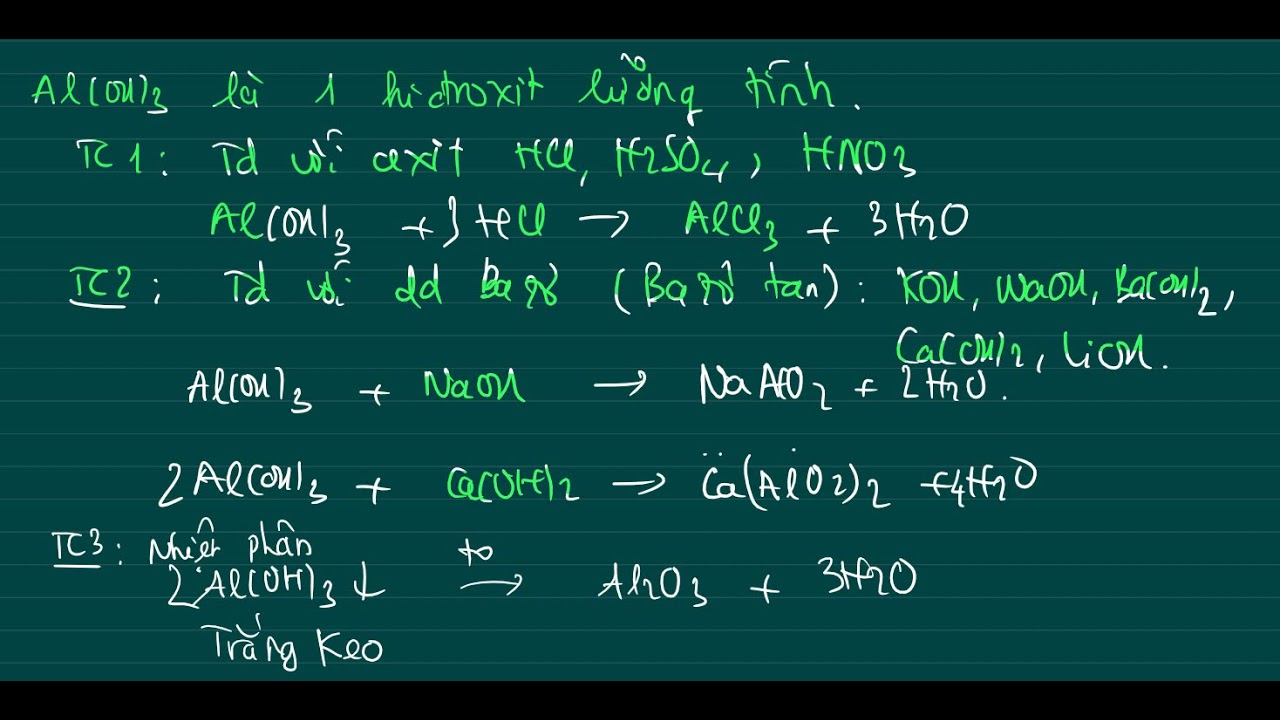 Al(OH)3 là 1 hidroxit lưỡng tính.
TC1: Td với axit HCl, H2SO4, HNO3
Al(OH)3 + 3HCl → AlCl3 + 3H2O
TC2: Td với dd Bazơ (Bazơ tan): KOH, NaOH, Ba(OH)2,
Ca(OH)2, LiOH.
Al(OH)3 + NaOH → NaAlO2 + 2H2O.
2Al(OH)3 + Ca(OH)2 → Ca(AlO2)2 + 4H2O
TC3: Nhiệt phân
2Al(OH)3↓ to → Al2O3 + 3H2O
Trắng Keo